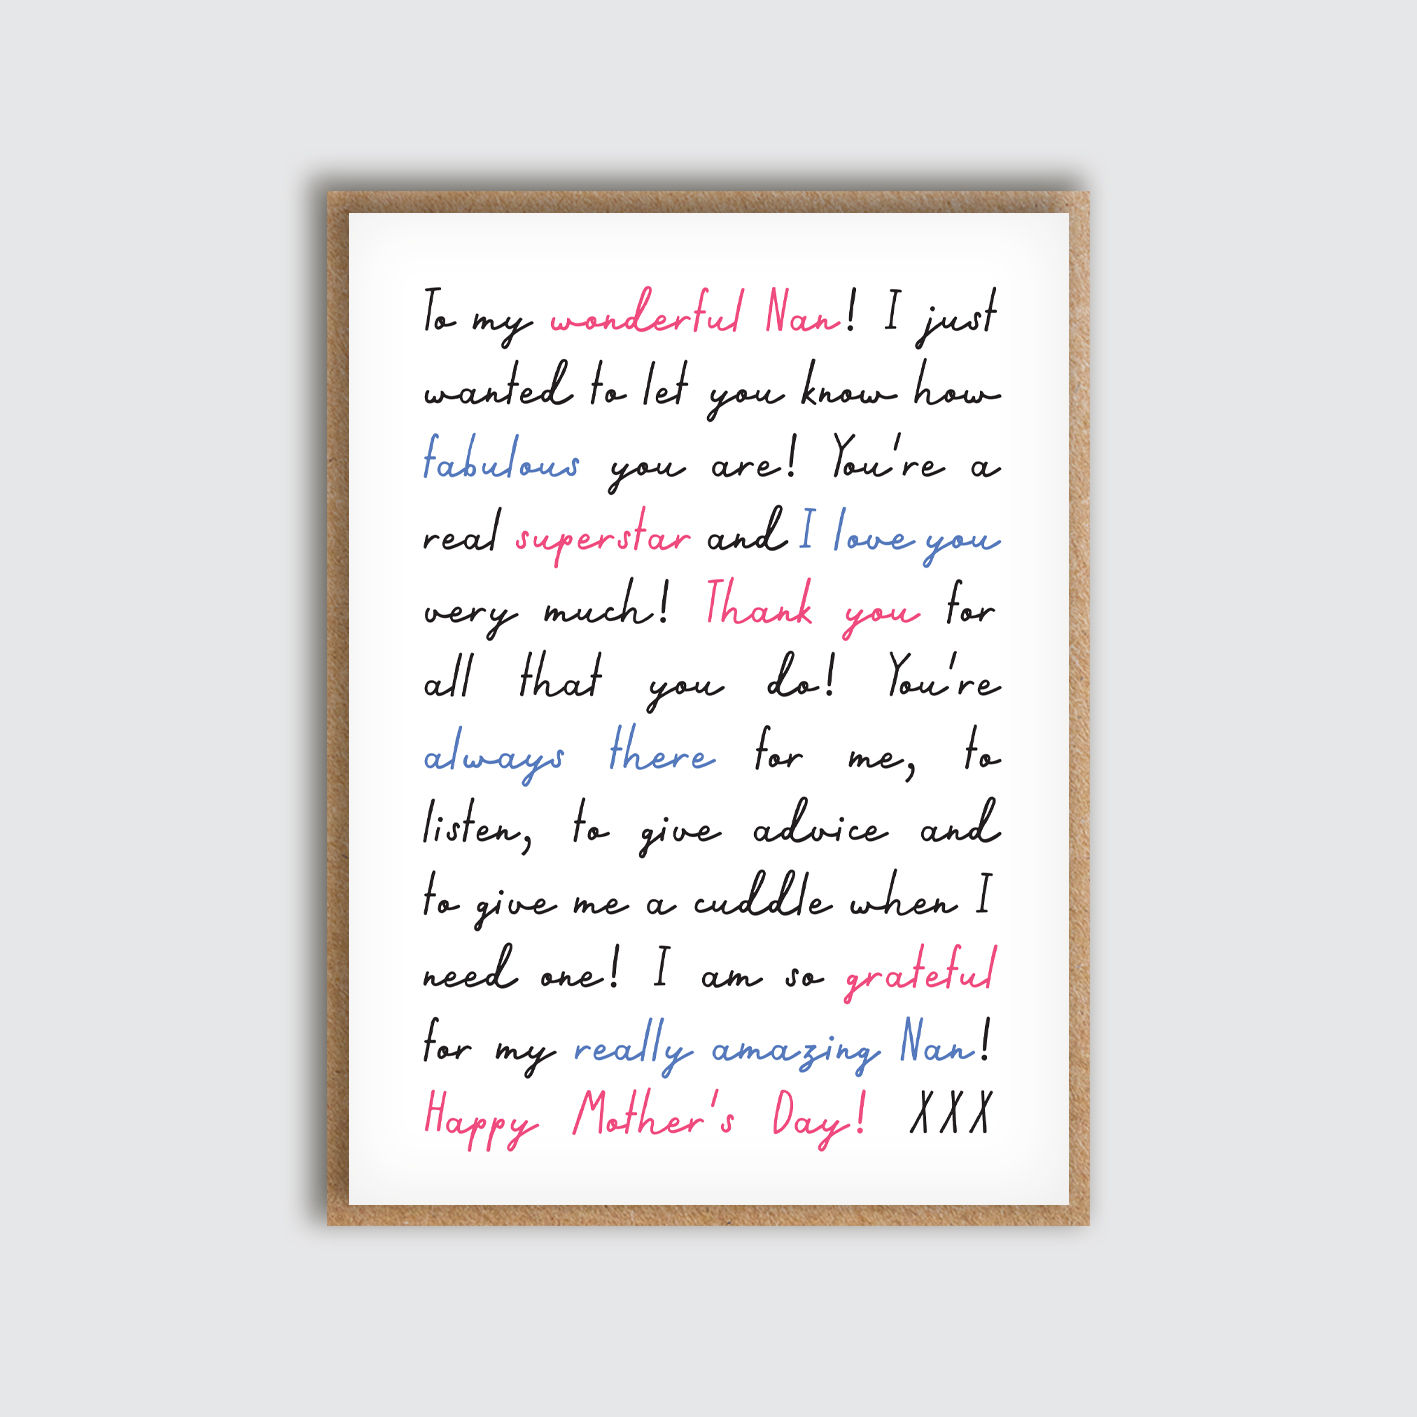 To my wonderful Nan! I just
wanted to let you know how
fabulous you are! You're a
real superstar and I love you
very much! Thank you for
all that you do! You're
always there for me, to
listen, to give advice and
to give me a cuddle when I
need one! I am so grateful
for my really amazing Nan!
Happy Mother's Day! XXX